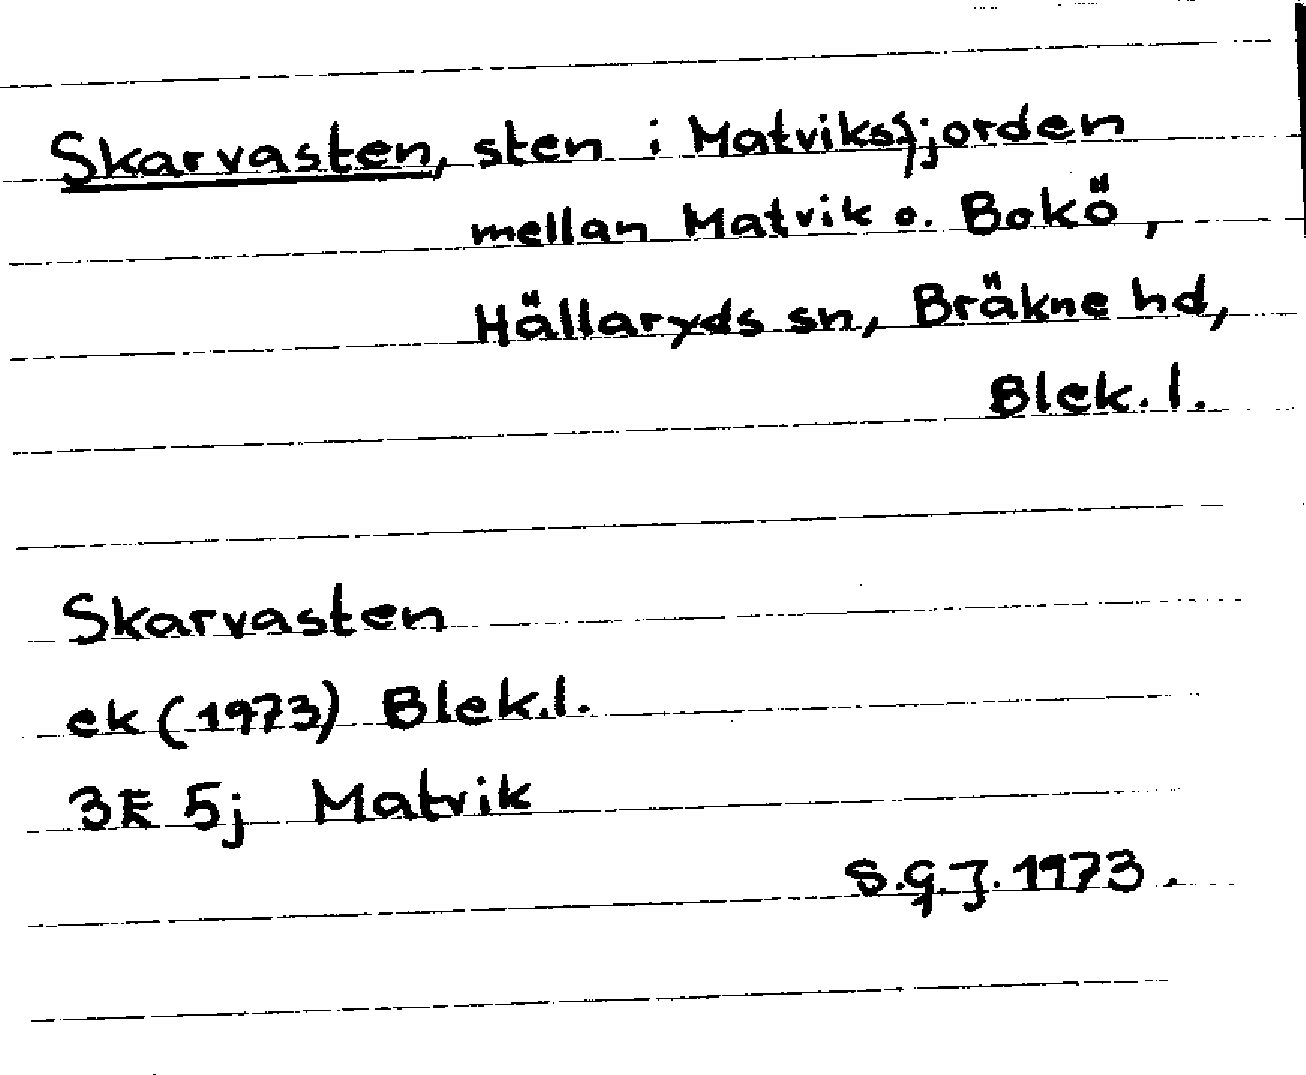 Skarvasten, sten i Matviksfjorden
mellan Matvik o. Bokö,
Hällaryds sn, Bräkne hd,
Blek. l.
Skarvasten
ek (1973) Blek.l.
3E 5j Matvik
S.G.J. 1973.